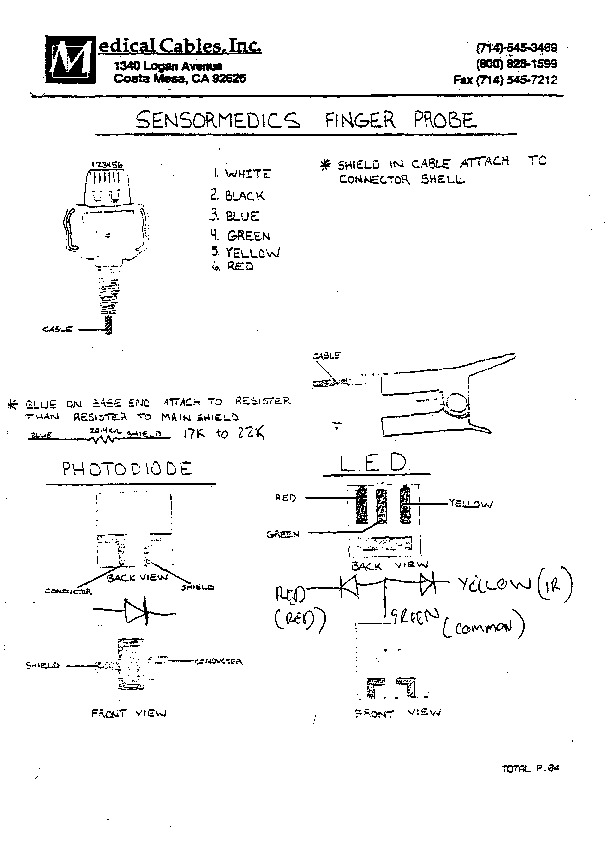 Medical Cables, Inc.
1340 Logan Avenue
Costa Mesa, CA 92626
(714)-545-3469
(800) 828-1599
Fax (714) 545-7212
SENSORMEDICS FINGER PROBE
123456
1. WHITE
2. BLACK
3. BLUE
4. GREEN
5. YELLOW
6. RED
* SHIELD IN CABLE ATTACH TO
CONNECTOR SHELL.
CABLE
CABLE
* BLUE ON BASE END ATTACH TO RESISTER
THAN RESISTER TO MAIN SHIELD
BLUE SHIELD 17K to 22K
PHOTODIODE
LED
RED
YELLOW
GREEN
BACK VIEW
CONDUCTOR
SHIELD
BACK VIEW
RED
(RED)
YELLOW (IR)
GREEN
(COMMON)
SHIELD
CONDUCTER
FRONT VIEW
FRONT VIEW
TOTAL P.04